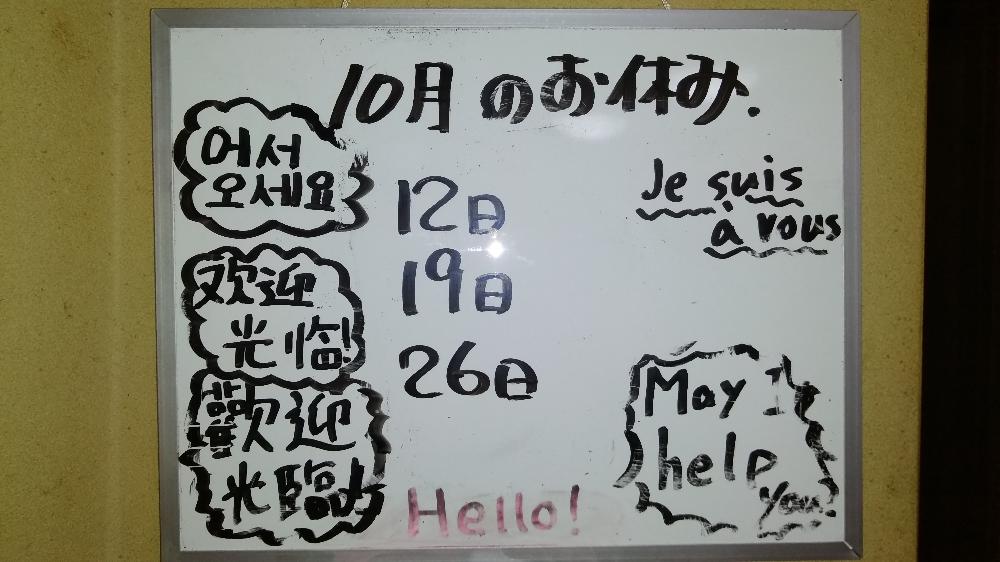 10月のお休み.
어서
오세요
欢迎
光临!
歡迎
光臨!
12日
19日
26日
Je suis
à vous
May I
help
you?
Hello!